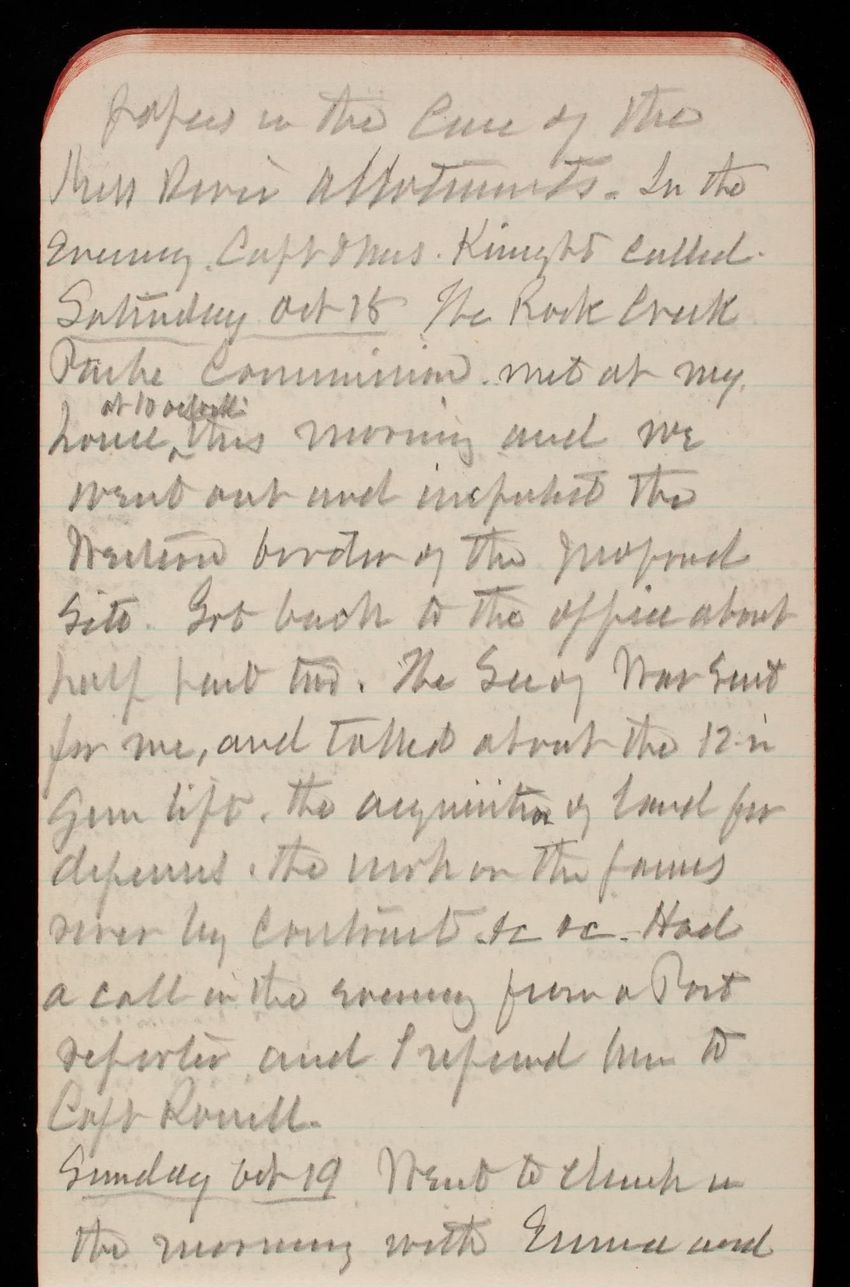 papers in the Case of the
Miss River Allotments. In the
Evening Capt & Mrs. Knight called.
Saturday Oct 18 The Rock Creek
Parke Commission met at my
at 10 oclock
house, this morning and we
went out and inspected the
Western border of the proposed
Site. Got back to the office about
half past two. The Sec of War sent
for me, and talked about the 12 in
Gun lift, the acquisition of land for
defenses, the work on the James
river by contract &c &c. Had
a call in the evening from a Post
reporter and I refered him to
Capt Rossell.
Sunday Oct 19 Went to church in
the morning with Emma and